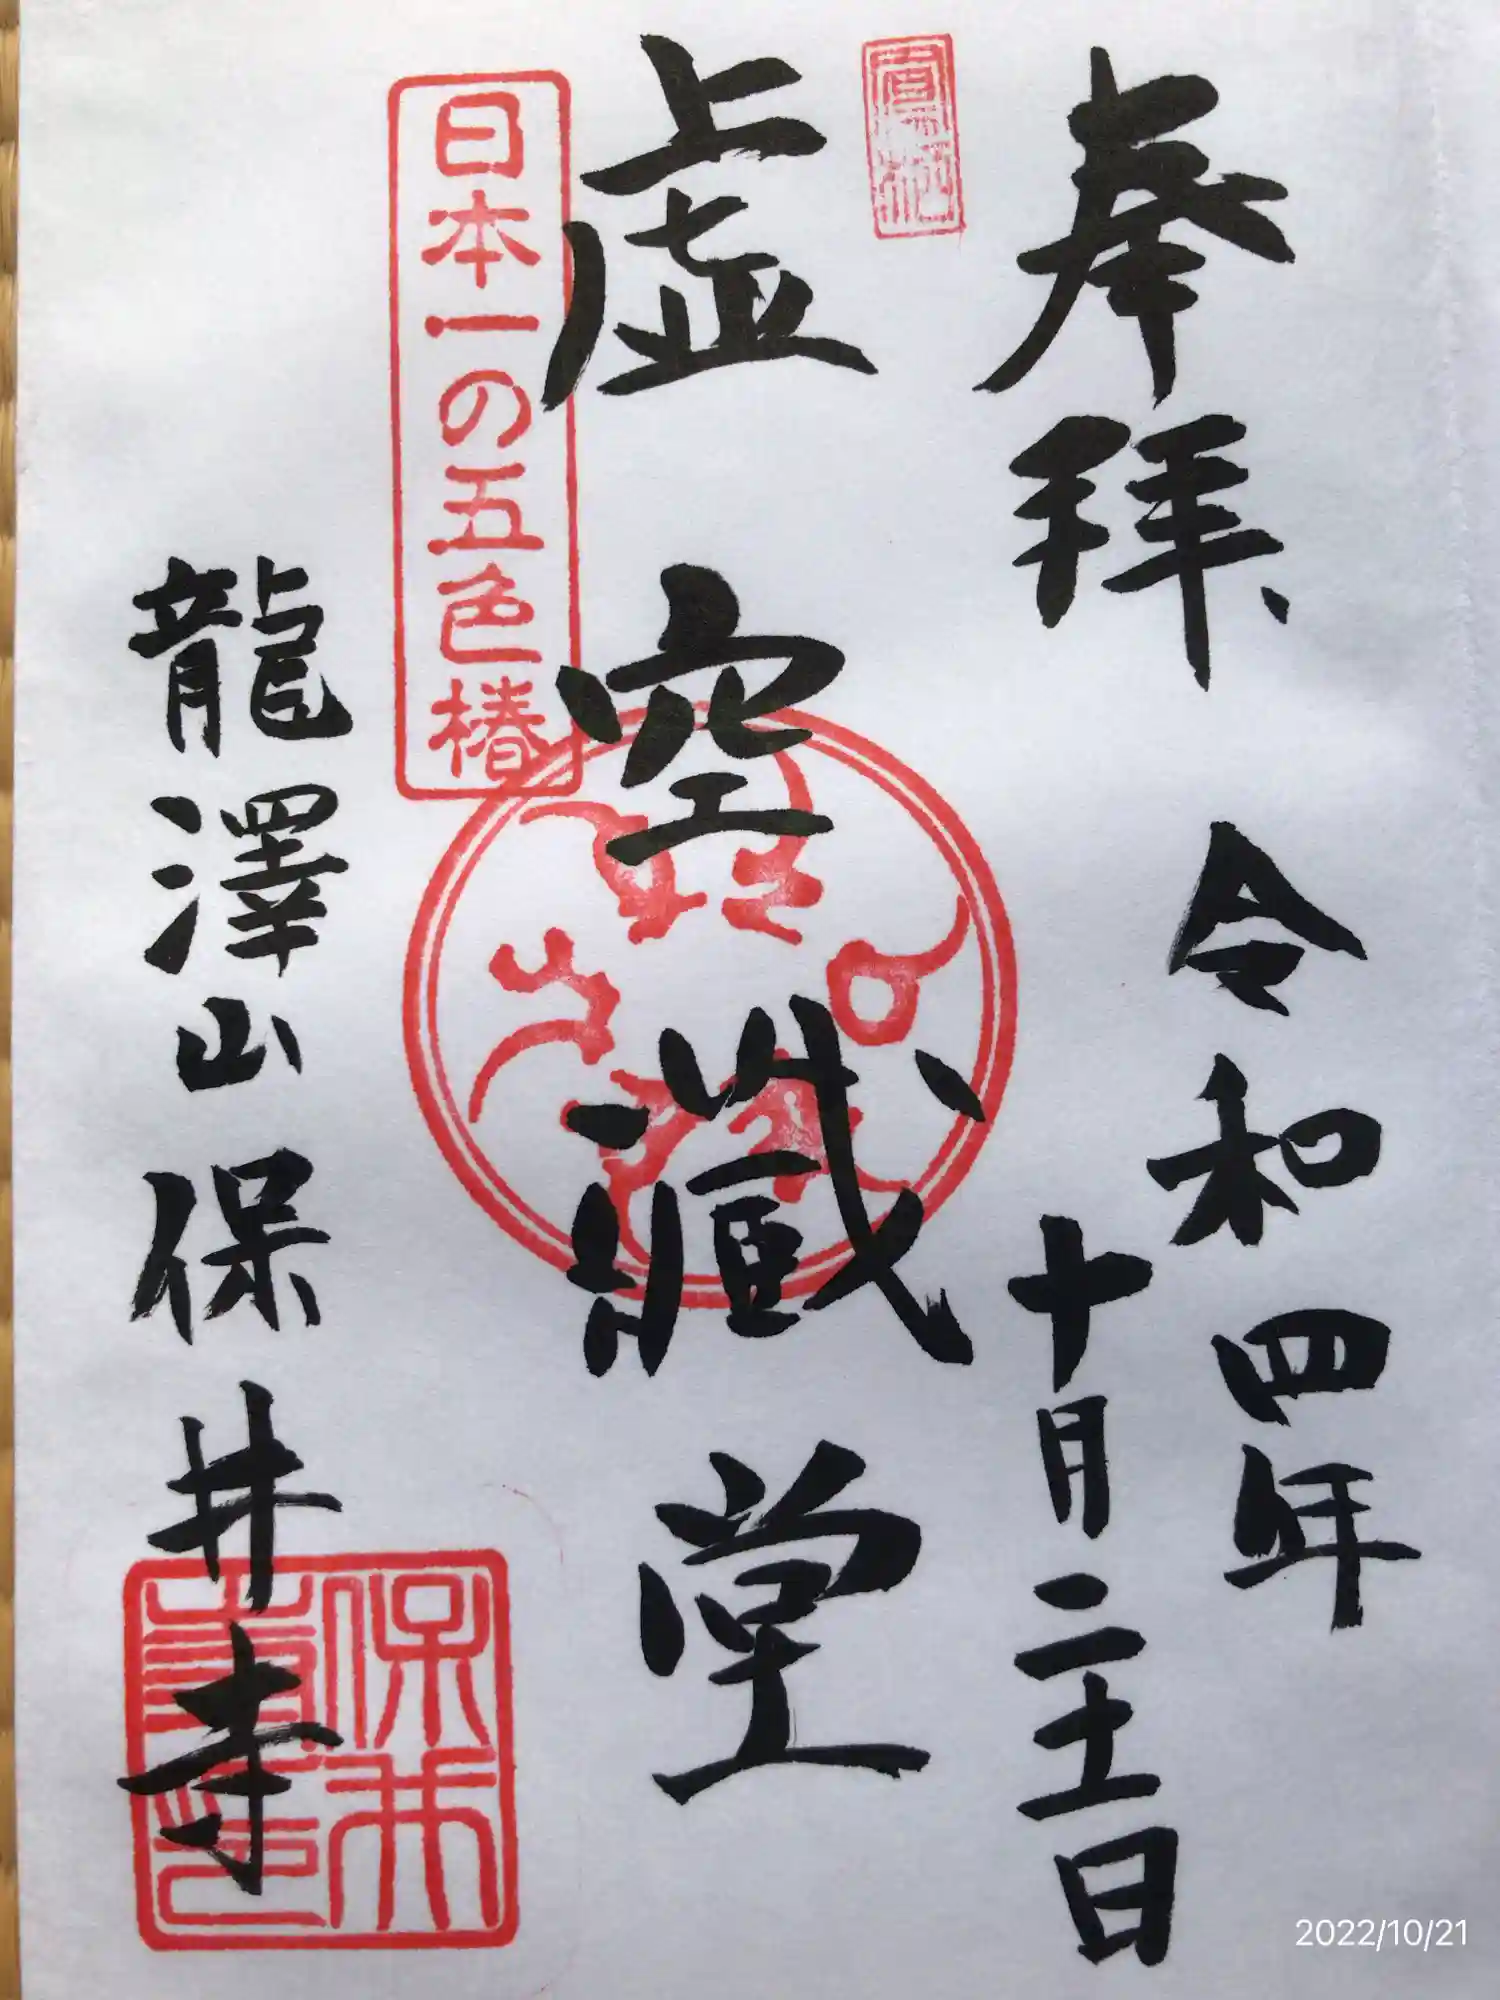 奉拝
令和四年
十月二十一日
虚空蔵堂
日本一の五色椿
龍澤山保井寺
保井寺印
2022/10/21